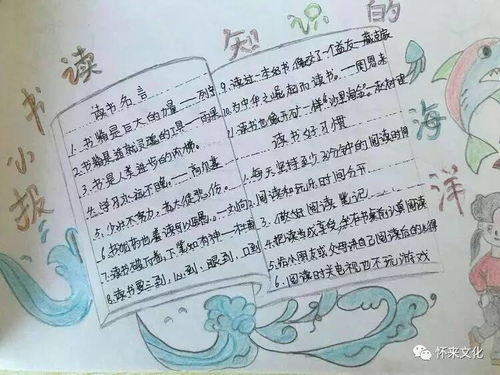 读书小报
知识的海洋
读书名言
1. 书籍是巨大的力量——列宁
2. 书籍是造就灵魂的工具——雨果
3. 书是人类进步的阶梯。——高尔基
4. 学习永远不晚。——高尔基
5. 少壮不努力,老大徒悲伤。
6. 我
7. 读书破万卷,下笔如有神——杜甫
8. 读书要三到,心到,眼到,口到
9. 读过一本好书,像交了一个益友—臧克家
10. 为中华之崛起而读书。——周恩来
11. 读书也像开矿一样"沙里淘金"—赵树理
读书好习惯
1. 每天坚持至少30分钟的阅读时间
2. 阅读和玩乐时间分开
3. 做好阅读笔记
4. 把读书成享受,坐在书桌前认真阅读
5. 给小朋友或父母讲自己阅读后的心得
6. 阅读时关电视也不玩游戏
怀来文化